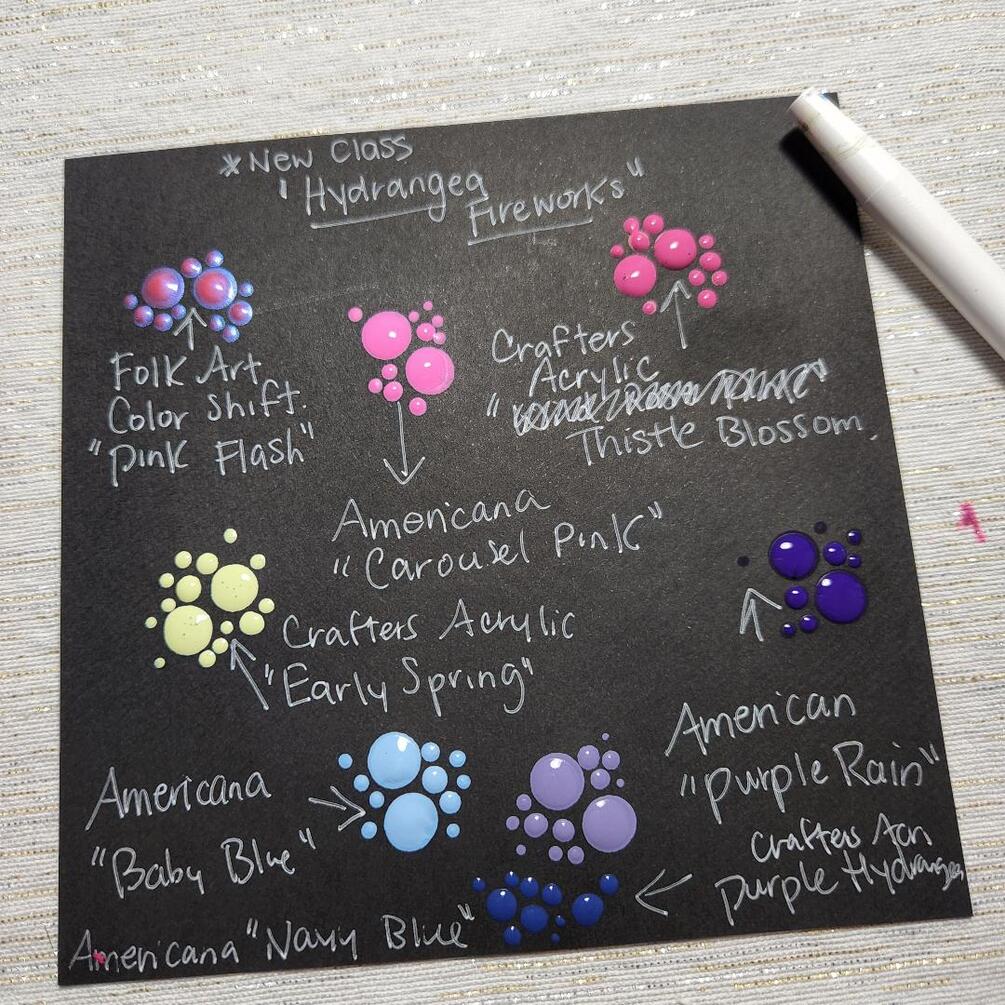 * New Class
"Hydrangea
Fireworks"
Folk Art
Color Shift.
"Pink Flash"
Crafters
Acrylic
"
Thistle Blossom.
Americana
"Carousel Pink"
Crafters Acrylic
"Early Spring"
American
"Purple Rain"
Americana
"Baby Blue"
Crafters Acr
Purple Hydrangea
Americana "Navy Blue"